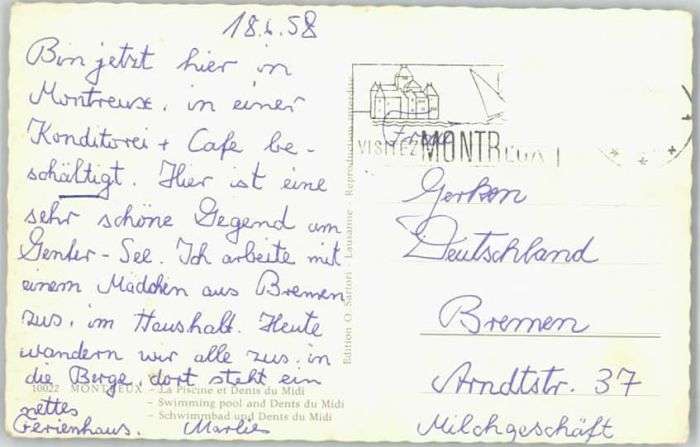 18.6.58
Bin jetzt hier in
Montreux, in einer
Konditorei + Cafe be-
schältigt. Hier ist eine
sehr schöne Gegend am
Genfer-See. Ich arbeite mit
einem Mädchen aus Bremen
zus. im Haushalt. Heute
wandern wir alle zus. in
die Berge, dort steht ein
nettes
Ferienhaus. Marlies
10022 MONTREUX - La Piscine et Dents du Midi
- Swimming pool and Dents du Midi
- Schwimmbad und Dents du Midi
Edition O. Sartori Lausanne Reproduction
VISITEZ MONTREUX
Gerken
Deutschland
Bremen
Arndtstr. 37
Milchgeschäft